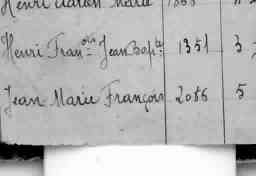 Henri Marie 1338
Henri Fran.ois Jean Bap.te 1351 3
Jean Marie François 2086 5